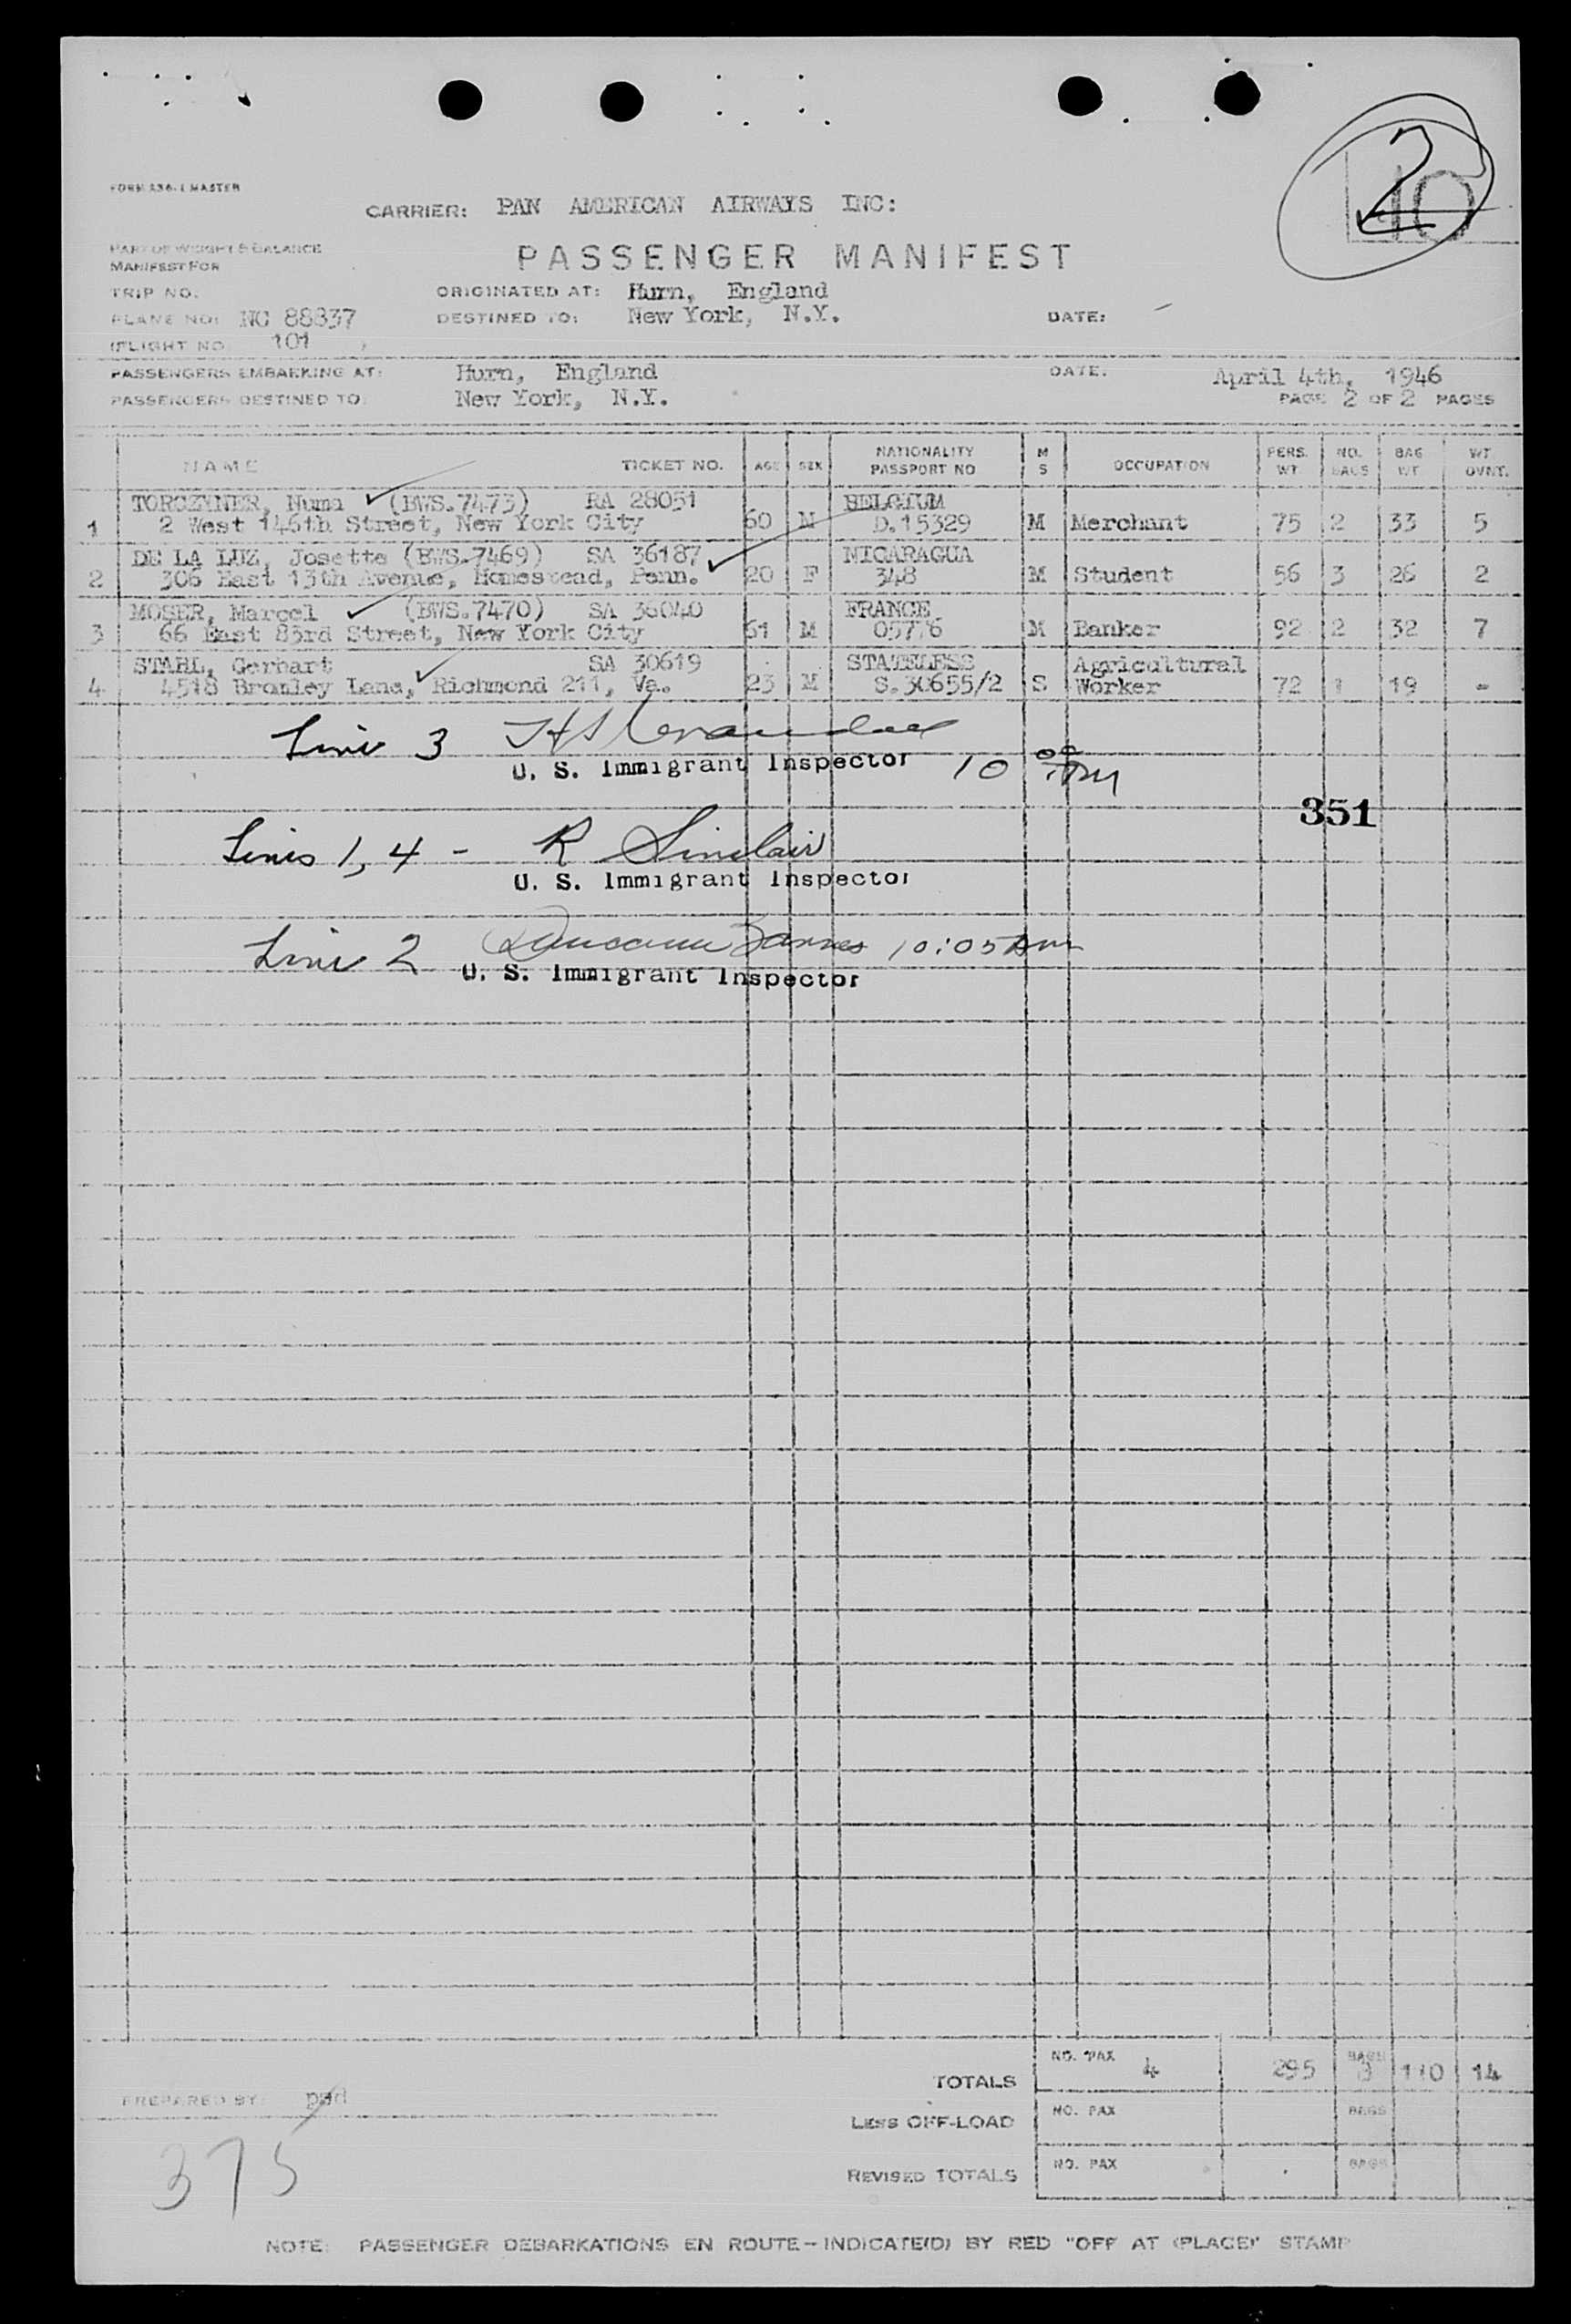 2
FORM 236-1 MASTER
CARRIER: PAN AMERICAN AIRWAYS INC:
PART OF WEIGHT & BALANCE
MANIFEST FOR
PASSENGER MANIFEST
TRIP NO.
ORIGINATED AT: Hurn, England
PLANE NO: NC 88837
DESTINED TO: New York, N.Y.
DATE:
FLIGHT NO. 101
PASSENGERS EMBARKING AT: Hurn, England
DATE. April 4th, 1946
PASSENGERS DESTINED TO: New York, N.Y.
PAGE 2 OF 2 PAGES
NAME TICKET NO. AGE SEX NATIONALITY PASSPORT NO M S OCCUPATION PERS. WT. NO. BAGS BAG WT WT. OVNT.
TORCZYNER, Numa (BWS.7473) RA 28051 BELGIUM
1 2 West 146th Street, New York City 60 M D.15329 M Merchant 75 2 33 5
DE LA LUZ, Josette (BWS.7469) SA 36187 NICARAGUA
2 306 East 13th Avenue, Homestead, Penn. 20 F 348 M Student 56 3 26 2
MOSER, Marcel (BWS.7470) SA 36040 FRANCE
3 66 East 83rd Street, New York City 61 M 05776 M Banker 92 2 32 7
STAHL, Gerhart SA 30619 STATELESS Agricultural
4 4518 Bromley Lane, Richmond 211, Va. 23 M S.30655/2 S Worker 72 1 19 -
Line 3
U. S. Immigrant Inspector 10 00 AM
351
Lines 1, 4 - R Sinclair
U. S. Immigrant Inspector
Line 2 10:05 Am
U. S. Immigrant Inspector
TOTALS NO. PAX 4 295 BAGS 8 110 14
PREPARED BY:
LESS OFF-LOAD NO. PAX BAGS
375
REVISED TOTALS NO. PAX BAGS
NOTE: PASSENGER DEBARKATIONS EN ROUTE - INDICATE(D) BY RED "OFF AT (PLACE)" STAMP